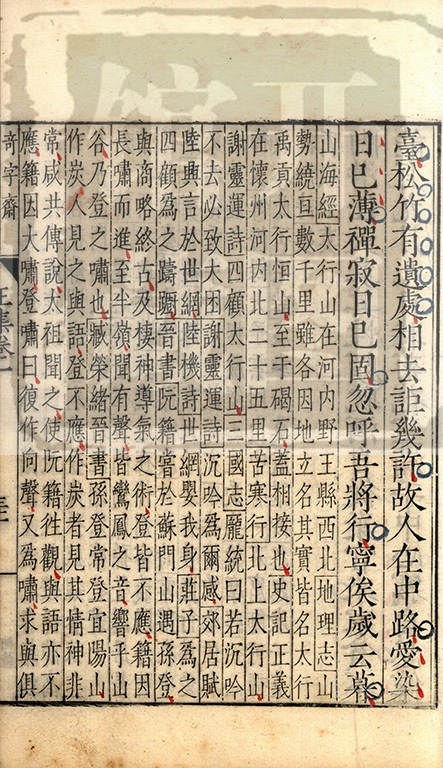 臺松竹有遺處相去詎幾許故人在中路愛染
日已薄禪寂日已固忽呼吾將行寧俟歲云暮
山海經太行山在河內野王縣西北地理志山
勢繞亘數千里雖各因地立名其實皆名太行
禹貢太行恒山至于碣石蓋相接也史記正義
在懷州河內北二十五里苦寒行北上太行山
謝靈運詩四顧太行山三國志龐統曰若沉吟
不去必致大困謝靈運詩沉吟爲爾感郊居賦
陸典言於世網陸機詩世網嬰我身莊子爲之
四顧爲之躊躇晉書阮籍嘗於蘇門山遇孫登
與商略終古及棲神導氣之術登皆不應籍因
長嘯而進至半嶺聞有聲皆鸞鳳之音響乎山
谷乃登之嘯也臧榮緒晉書孫登嘗登宜陽山
作炭人見之與語登不應作炭者見其情神非
常咸共傳說太祖聞之使阮籍徃觀與語亦不
應籍因大嘯登嘯曰復作向聲又爲嘯求與俱
奇字齋